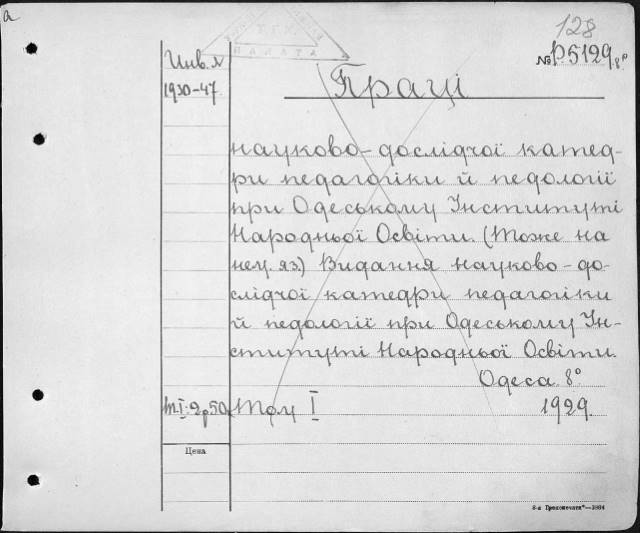 а
128
№ Р.5129 8°
ПАЛАТА
Инв. №
1930-47.
Праці
науково-дослідчої катед-
ри педагогіки й педології
при Одеському Інституті
Народньої Освіти. (Тоже на
нем. яз.) Видання науково-до-
слідчої катедри педагогіки
й педології при Одеському Ін-
ституті Народньої Освіти.
Одеса. 8°
т.I: 2р50 Том I 1929.
Цена